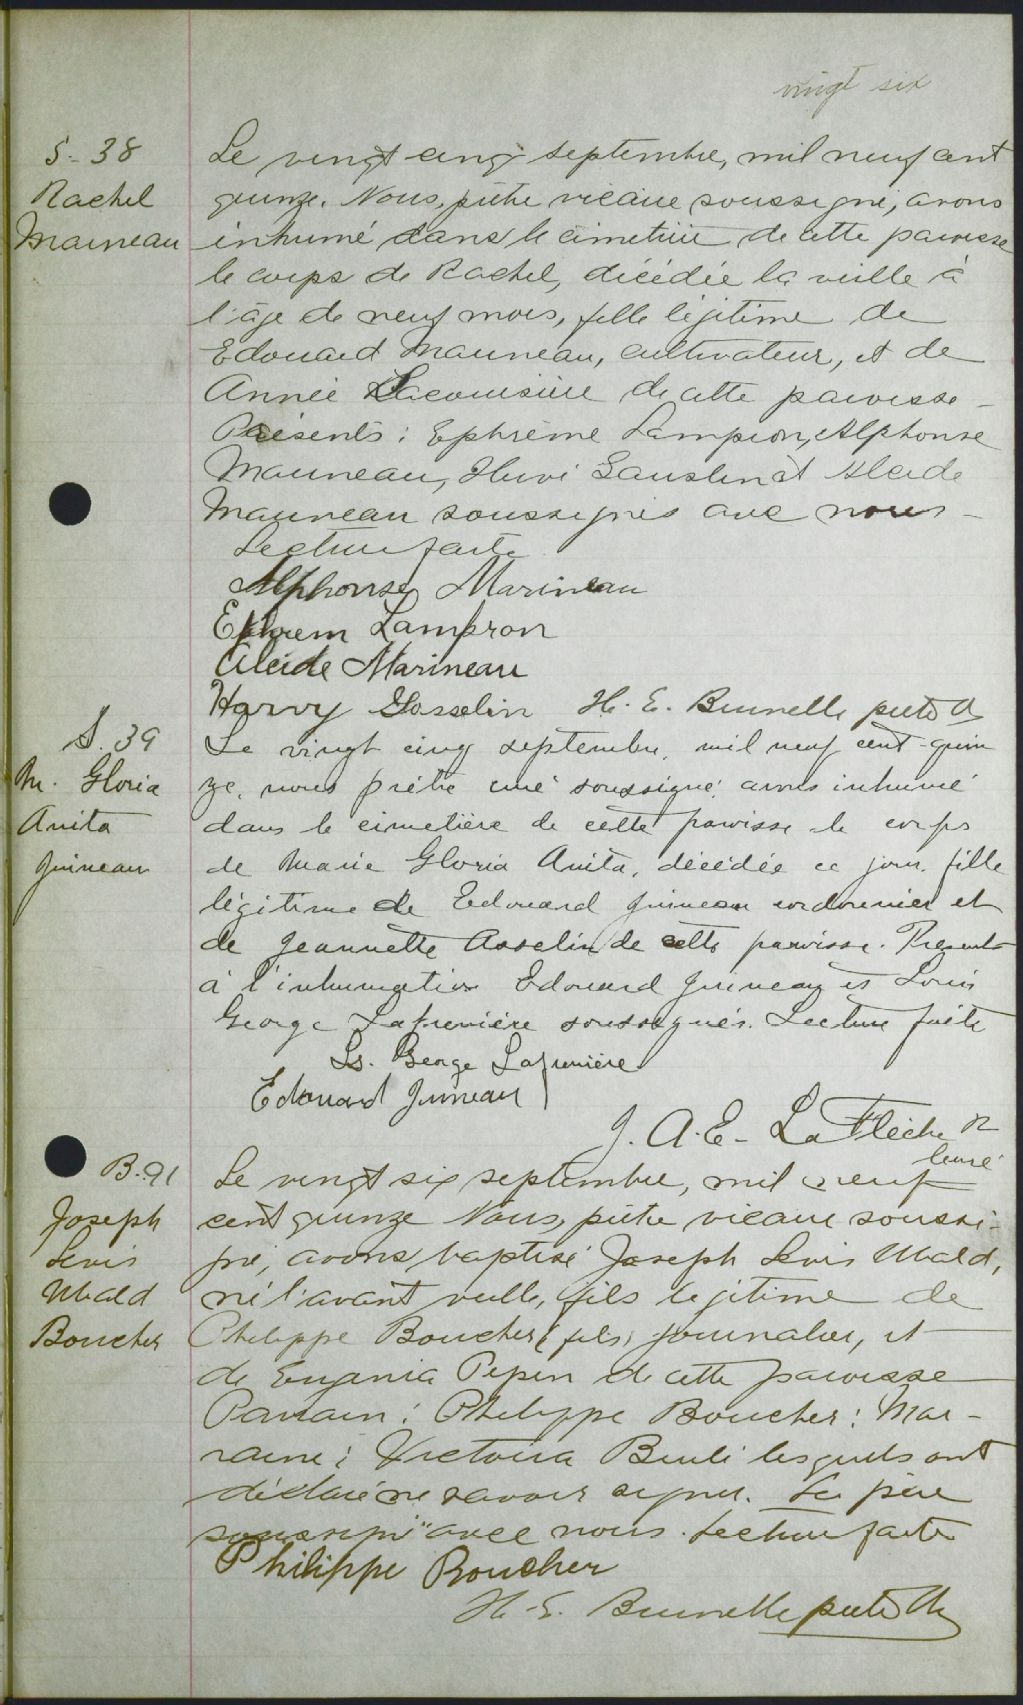 vingt six
S. 38
Rachel
Marineau
Le vingt cinq septembre, mil neuf cent
quinze. Nous, prêtre vicaire soussigné, avons
inhumé dans le cimetière de cette paroisse
le corps de Rachel, décédée la veille à
l'âge de neuf mois, fille légitime de
Edouard Marineau, cultivateur, et de
Année Lacoursière de cette paroisse
Présents : Ephrème Lampron, Alphonse
Marineau, Hervé Gausslin et Alcide
Marineau soussignés avec nous -
Lecture faite
Alphonse Marineau
Ephrem Lampron
Alcide Marineau
Harvy Gosselin H. E. Brunelle ptre
S. 39
M. Gloria
Anita
Juineau
Le vingt cinq septembre, mil neuf cent quin
ze, nous prêtre curé soussigné avons inhumé
dans le cimetière de cette paroisse le corps
de Marie Gloria Anita, décédée ce jour, fille
légitime de Edouard Juineau cordonnier et
de Jeannette Asselin de cette paroisse. Presents
à l'inhumation Edouard Juineau et Louis
George Lafrenière soussignés. Lecture faite
Ls. George Lafrenière
Edouard Juineau
J. A. E. LaFlèche
curé
B. 91
Joseph
Levis
Ubald
Boucher
Le vingt six septembre, mil neuf
cent quinze Nous, prêtre vicaire soussi-
gné, avons baptisé Joseph Levis Ubald,
né l'avant veille, fils légitime de
Philippe Boucher (fils) journalier, et
de Eugénia Pepin de cette paroisse
Parrain : Philippe Boucher : Mar-
raine : Victoria Brulé lesquels ont
déclaré ne savoir signer. Le père
soussigné avec nous. Lecture faite
Philippe Boucher
H. E. Brunelle ptre